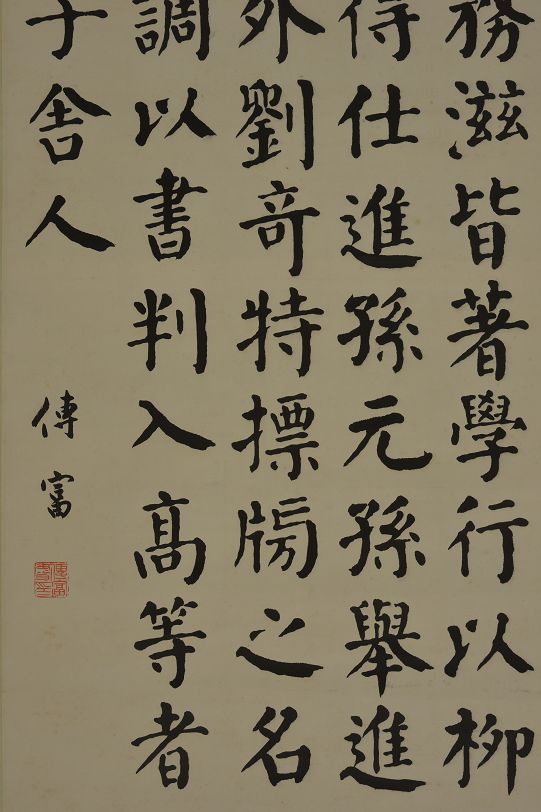 務滋皆著學行以柳
得仕進孫元孫舉進
外劉奇特摽牓之名
調以書判入高等者
子舍人
傅富